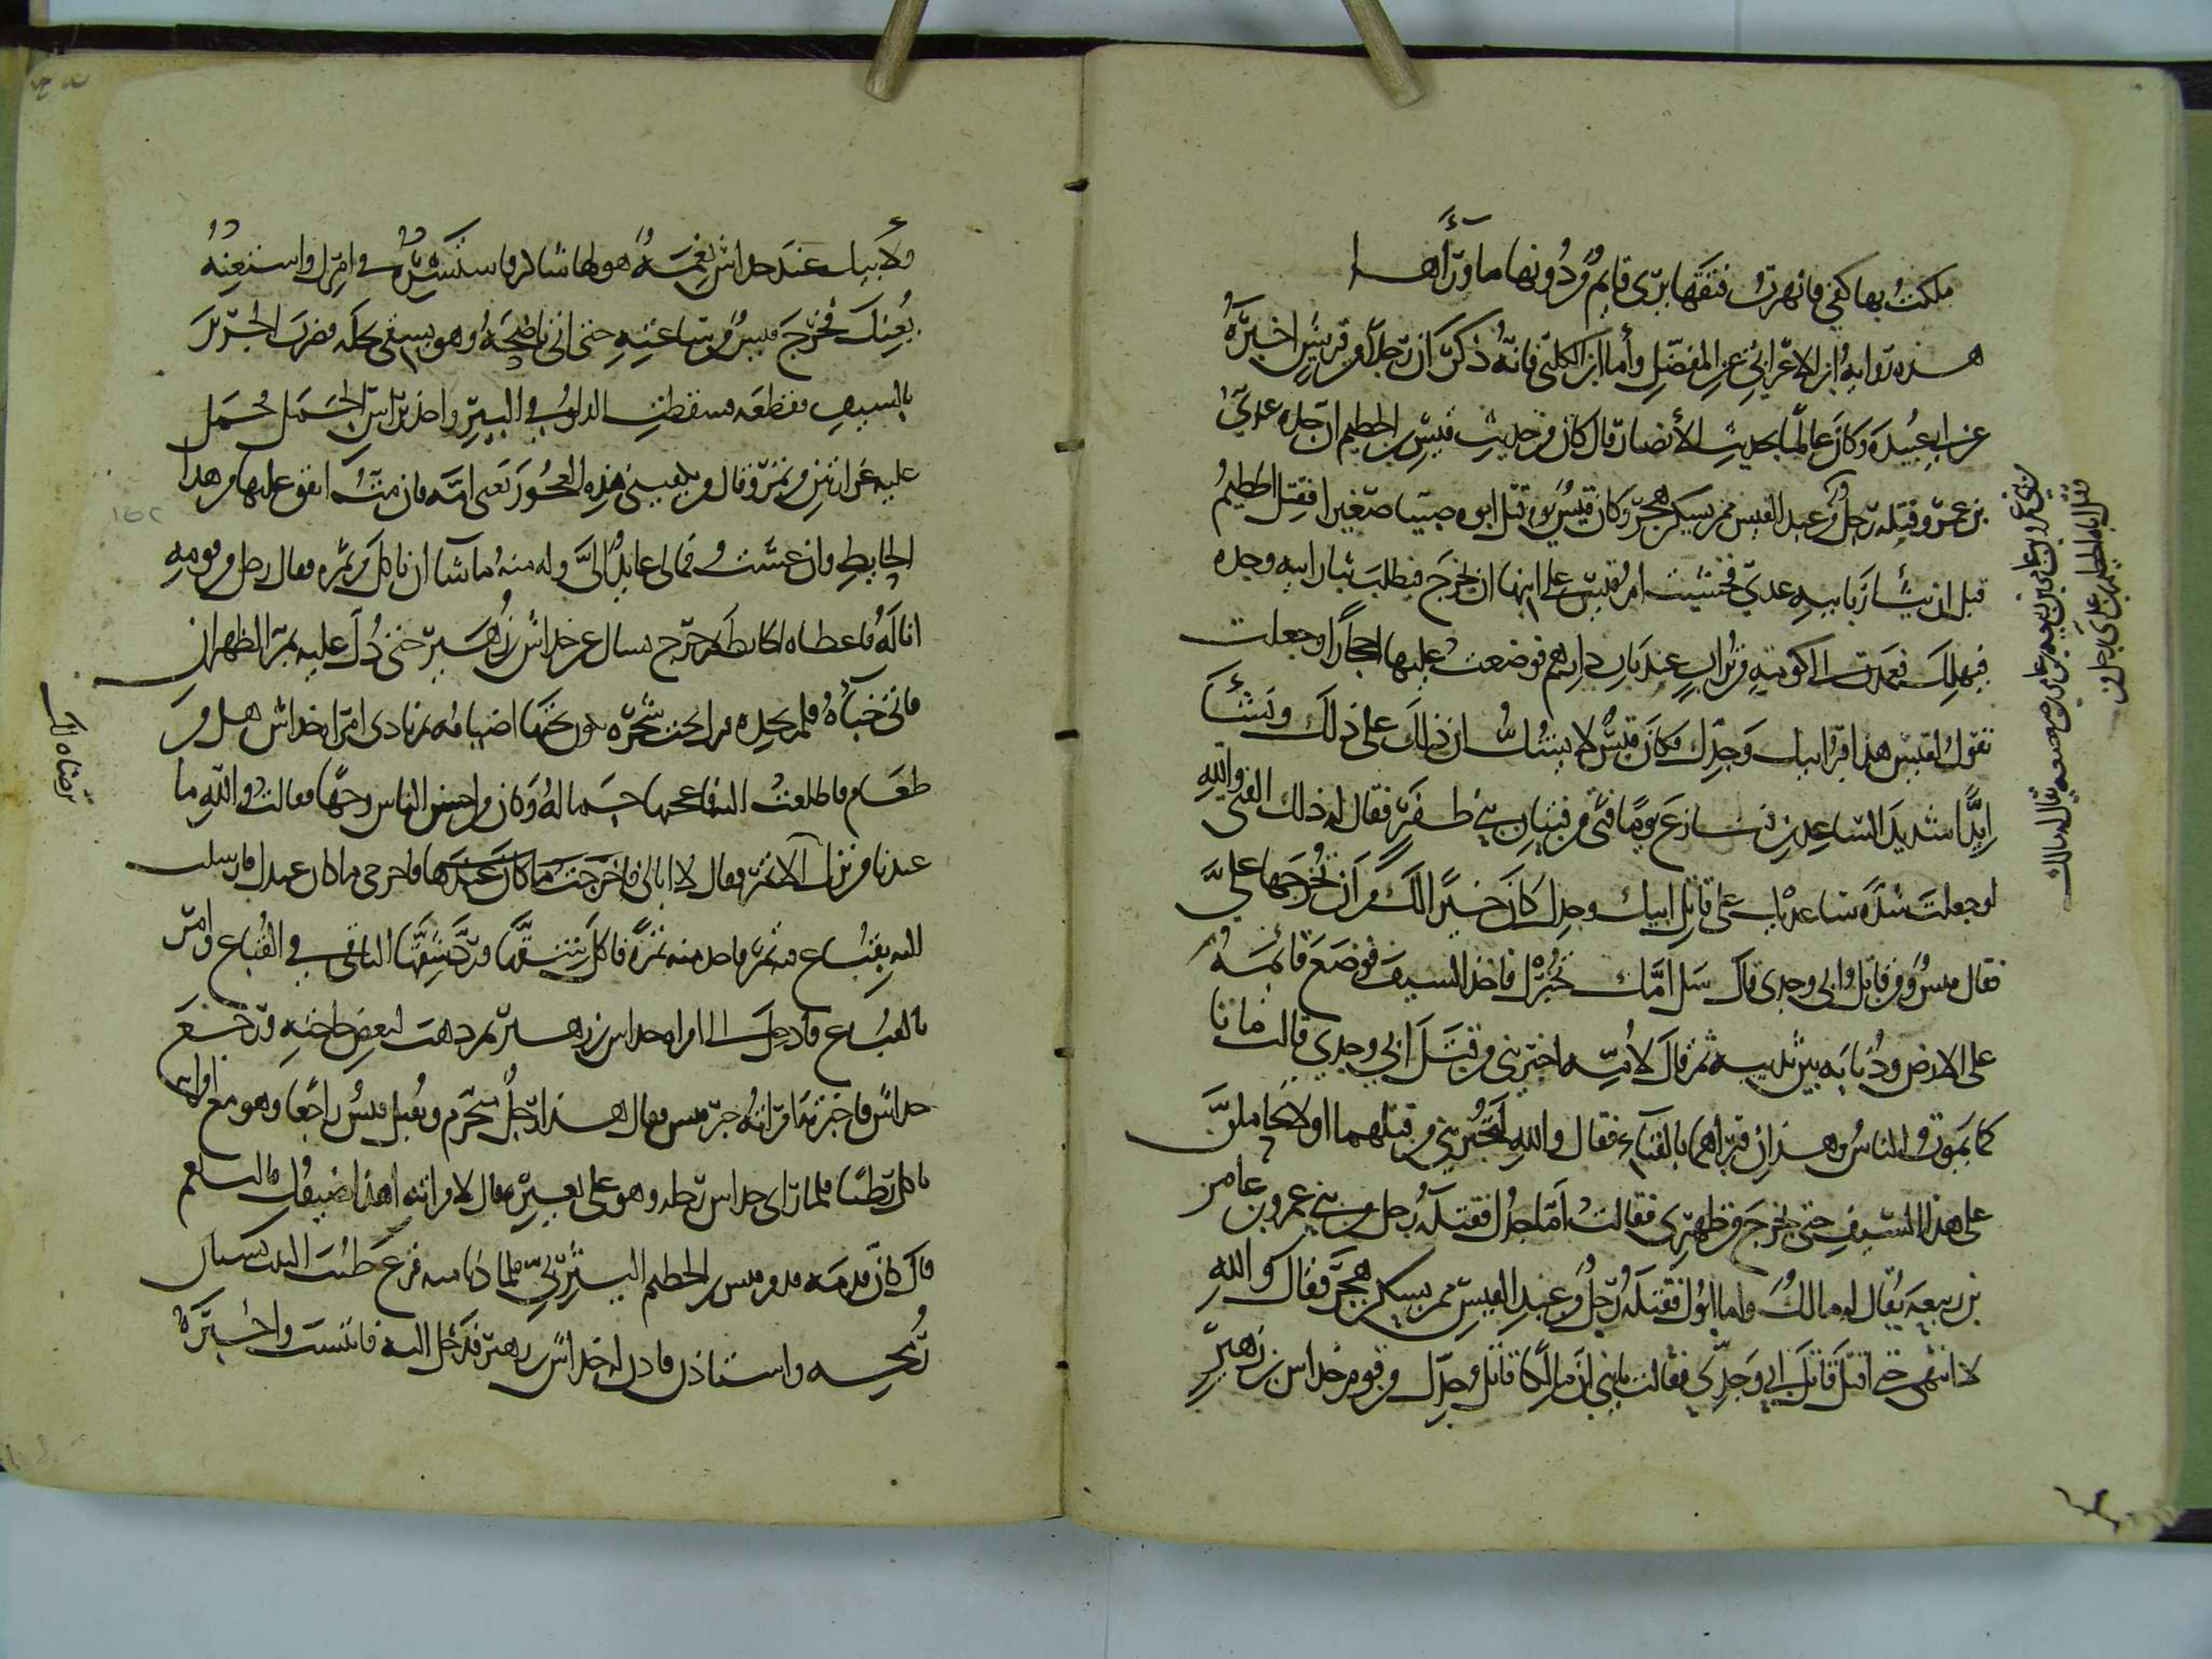 ملكت بها كفي فانهرت فتقها يرى قايم من دونها ما ورآءها
هذه رواية ابن الاعرابي عن المفضل وأما ابن الكلبي فانه ذكر ان رجلا من قريش اخبره
عن ابي عبيدة وكان عالما بحديث الأنصار قال كان من حديث قيس بن الخطيم ان جده عدي
بن عمرو قتله رجل من عبد القيس ممن يسكن هجر وكان قيس يوم قتل ابوه صبيا صغيرا فقتل الخطيم
قبل ان يثأر بابيه عدي فخشيت ام قيس على ابنها ان يخرج فيطلب بثار ابيه وجده
فيهلك فعمدت الى كومة من تراب عند باب دارهم فوضعت عليها احجارا وجعلت
تقول لقيس هذا قبر ابيك وجدك فكان قيس لا يشك ان ذلك على ذلك ونشأ
ايدا شديد الساعدين فنازع يوما فتى من فتيان بني ظفر فقال له ذلك الفتى والله
لو جعلت شدة ساعديك على قاتل ابيك وجدك كان خيرا لك من ان تخرجها علي
فقال قيس ومن قاتل ابي وجدي قال سل امك تخبرك فاخذ السيف فوضع قائمه
على الارض وذبابه بين ثدييه ثم قال لامه اخبريني من قتل ابي وجدي قالت ماتا
كما يموت الناس وهذان قبراهما بالفناء فقال والله لتخبرينني من قتلهما او لاتحاملن
على هذا السيف حتى يخرج من ظهري فقالت اما جدك فقتله رجل من بني عمرو بن عامر
بن ربيعة يقال له مالك واما ابوك فقتله رجل من عبد القيس ممن يسكن هجر فقال والله
لا انتهي حتى اقتل قاتل ابي وجدي فقالت يا بني ان مالكا قاتل جدك من قوم خداش بن زهير
ولابيك عند خداش نعمة هو لها شاكر فاته فاستشره في امرك واستعنه
يعنك فخرج قيس من ساعته حتى اتى ناضحه وهو يسقي نخله فضرب الجرير
بالسيف فقطعه فسقطت الدلو في البير واخذ براس الجمل فحمل
عليه غرارتين من تمر وقال من يكفيني هذه العجوز يعني امه فان مت انفق عليها من هذا
الحايط وان عشت فمالي عايد الي وله منه ما شا ان ياكل من تمره فقال رجل من قومه
انا له فاعطاه الحايط ثم خرج يسال عن خداش بن زهير حتى دل عليه بمر الظهران
فاتى خباه فلم يجده فنزل تحت شجره يكون تحتها اضيافه ثم نادى امراه خداش هل من
طعام فاطلعت اليه فاعجبها جماله وكان من احسن الناس وجها فقالت والله ما
عندنا من نزل الا تمر فقال لا ابالي فاخرجي ما كان عندك فارسلت
اليه بقباع فيه تمر فاخذ منه تمرة فاكل شقها ورد شقها الباقي في القباع وامر
بالقباع فادخل الى امراه خداش بن زهير ثم ذهب لبعض حاجته ورجع
خداش فاخبرته امراته خبر قيس فقال هذا رجل متحرم واقبل قيس راجعا وهو مع امراته
ياكل رطبا فلما راى خداش رجله وهو على بعيره قال لامراته اهذا ضيفك قالت نعم
قال كان قدمه قدم قيس بن الخطيم اليثربي فلما دنا منه قرع طنب البيت بسنان
رمحه واستاذن فاذن له خداش بن زهير فدخل اليه فانتسب واخبره